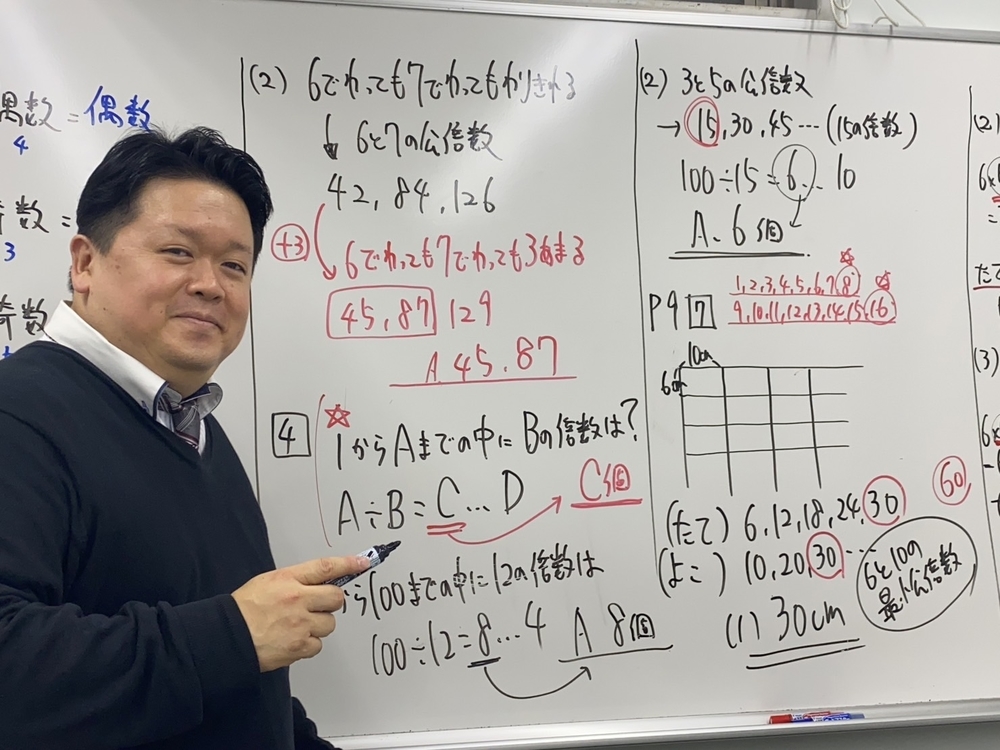 偶数 = 偶数
4
奇数 =
3
奇数
(2) 6でわっても7でわってもわりきれる
↓ 6と7の公倍数
42, 84, 126
+3
6でわっても7でわっても3あまる
45, 87 129
A. 45. 87
4
☆
1からAまでの中に Bの倍数は?
A÷B=C…D
C個
から100までの中に12の倍数は
100÷12=8…4 A 8個
(2) 3と5の公倍数
→ 15, 30, 45 … (15の倍数)
100÷15=6…10
A. 6個
P9 7
1, 2, 3, 4, 5, 6, 7, 8
9, 10, 11, 12, 13, 14, 15, 16
10cm
6cm
(たて) 6, 12, 18, 24, 30
(よこ) 10, 20, 30 …
6と10の
最小公倍数
(1) 30cm
(2)
たて
(3)
60